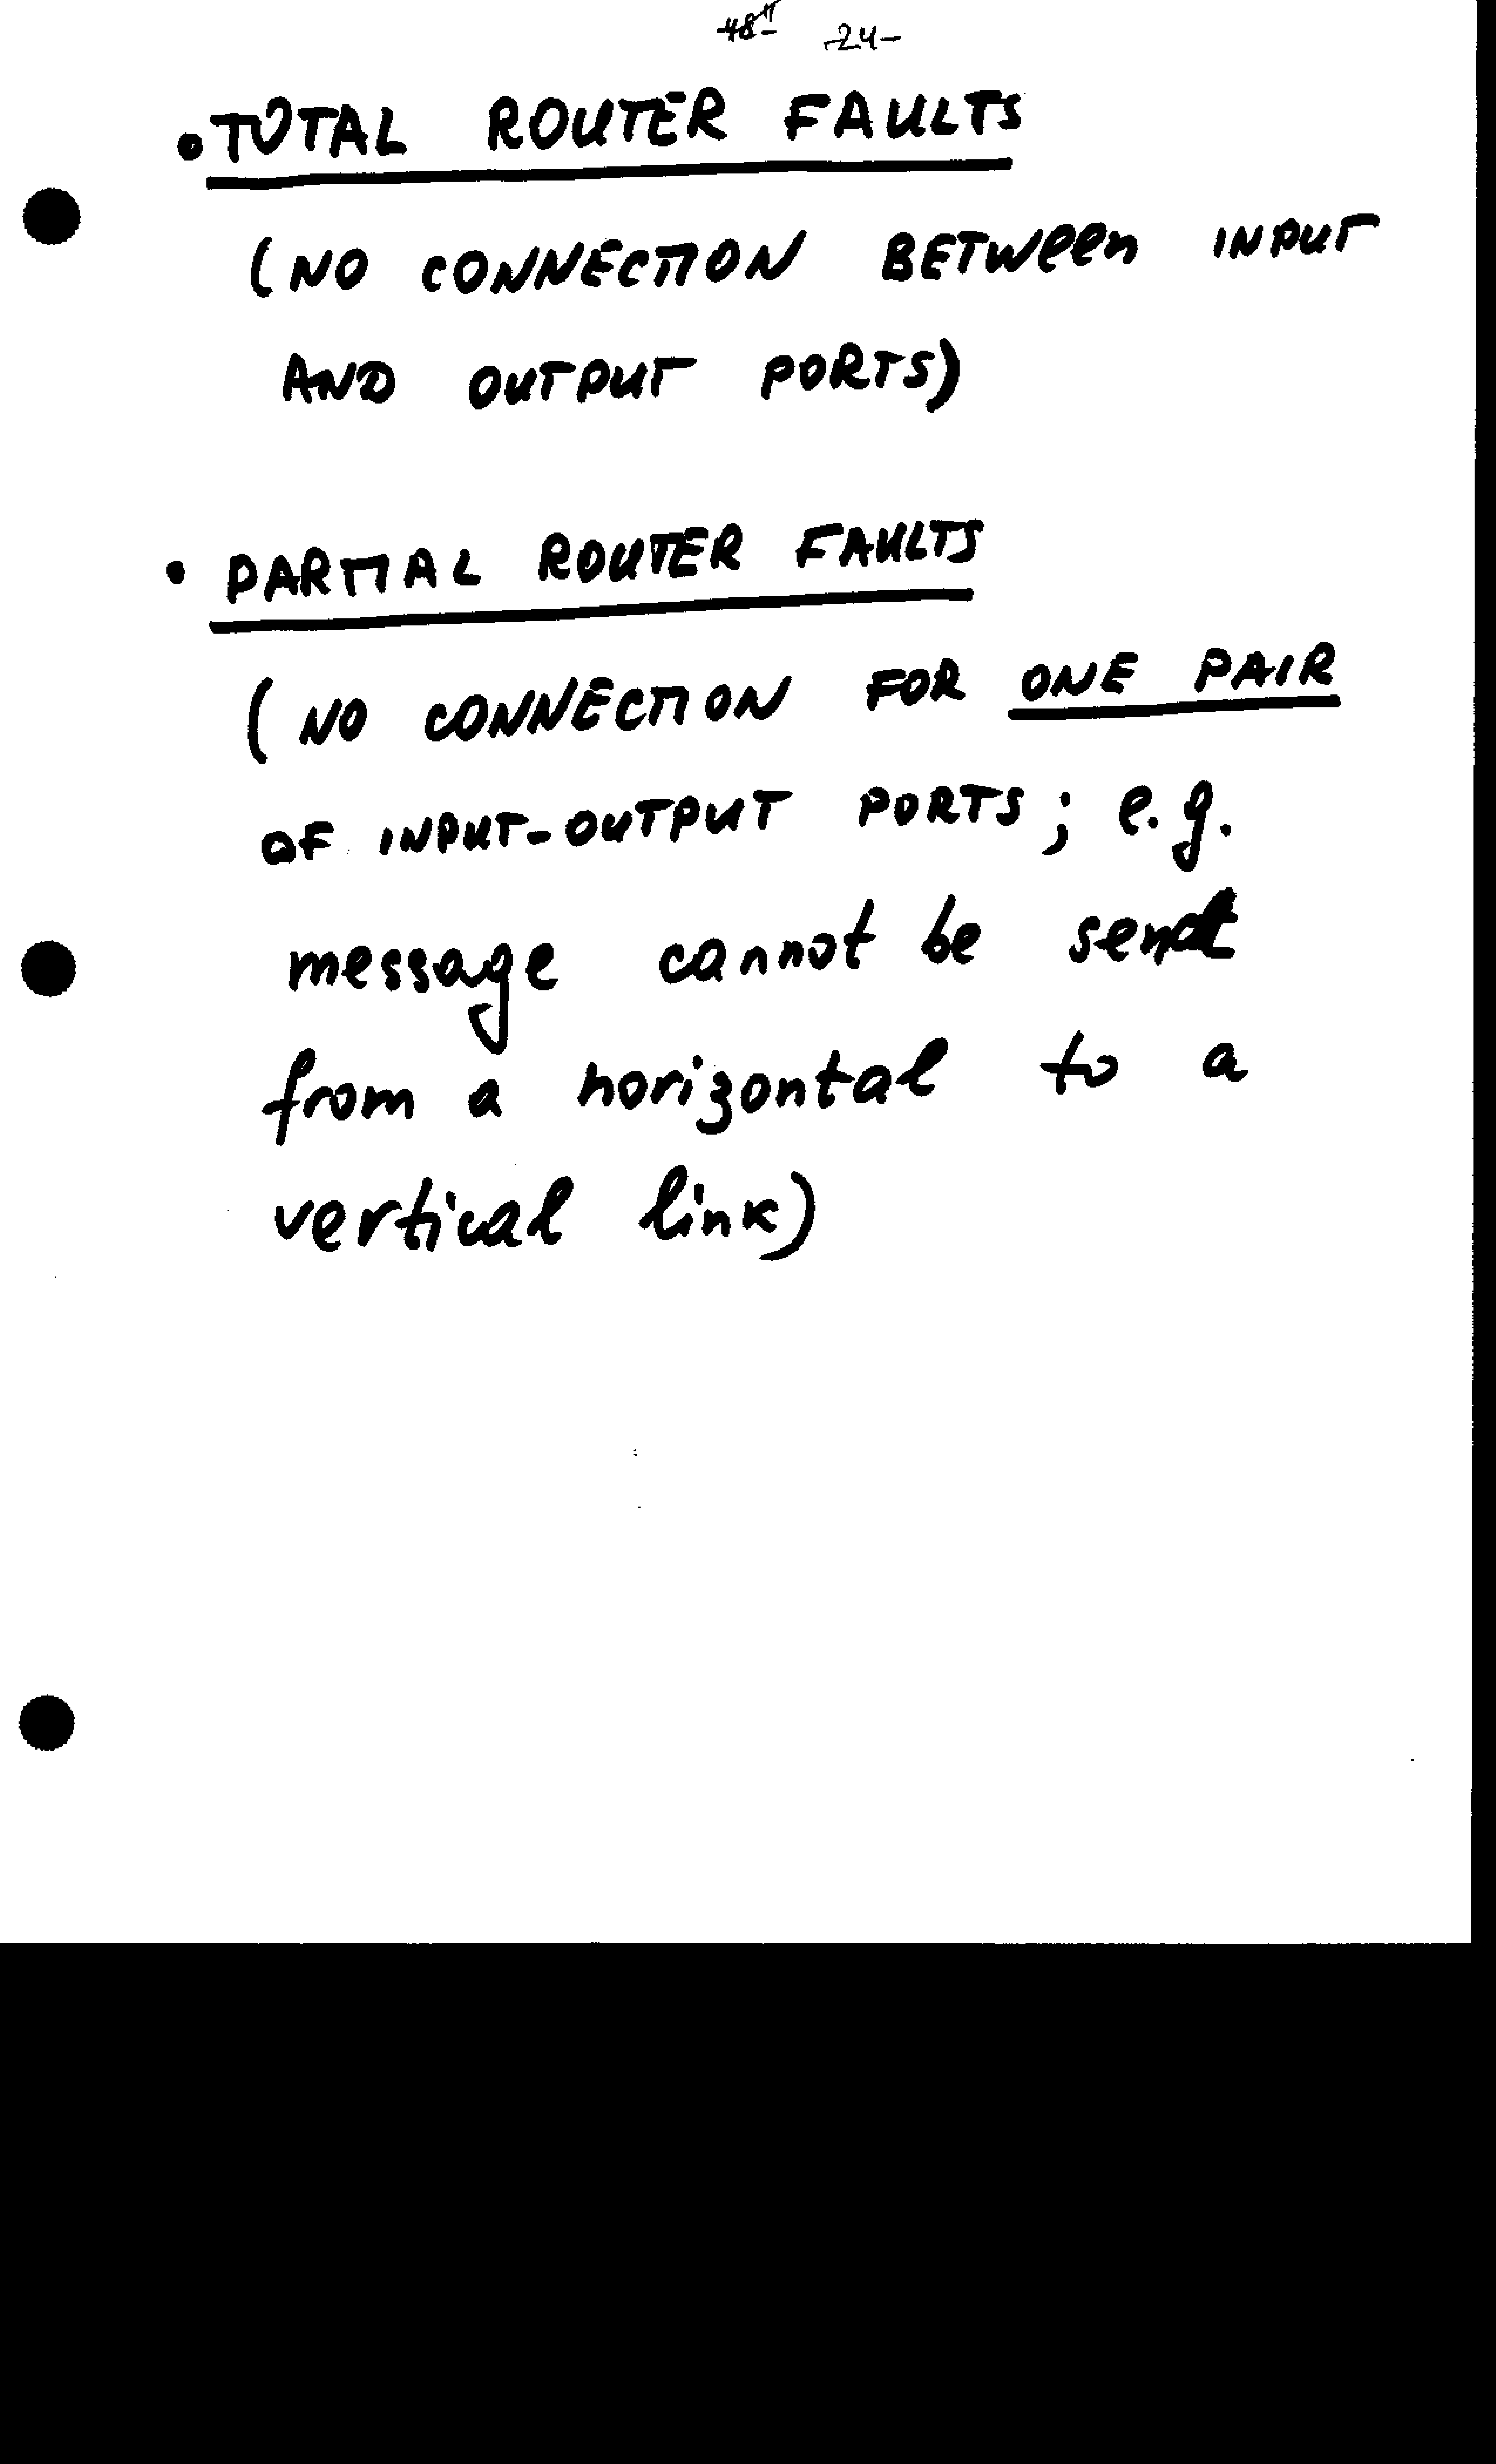 -24-
• TOTAL ROUTER FAULTS
(NO CONNECTION BETWEEN INPUT
AND OUTPUT PORTS)
• PARTIAL ROUTER FAULTS
(NO CONNECTION FOR ONE PAIR
OF INPUT-OUTPUT PORTS; e.g.
message cannot be sent
from a horizontal to a
vertical link)